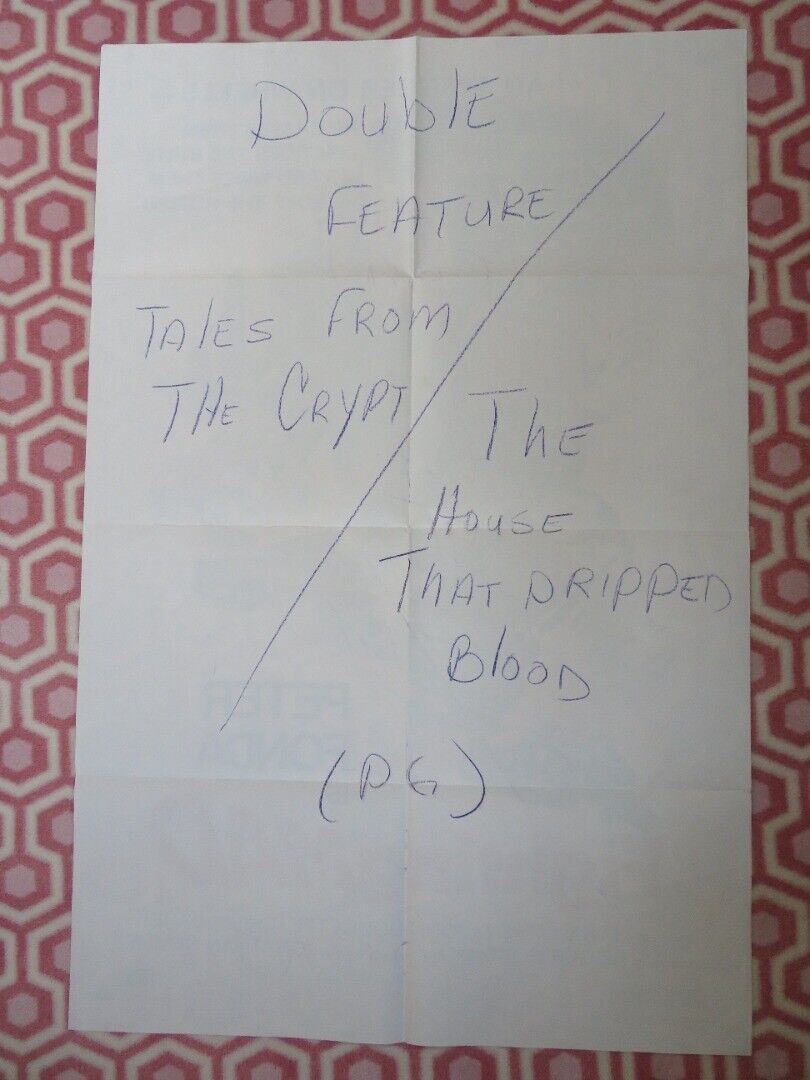 DOUblE
FEATURE
TAlES FROM
THE CRYPT
ThE
HOUSE
ThAT DRIPPED
BlOOD
(PG)
PETER
FONDA